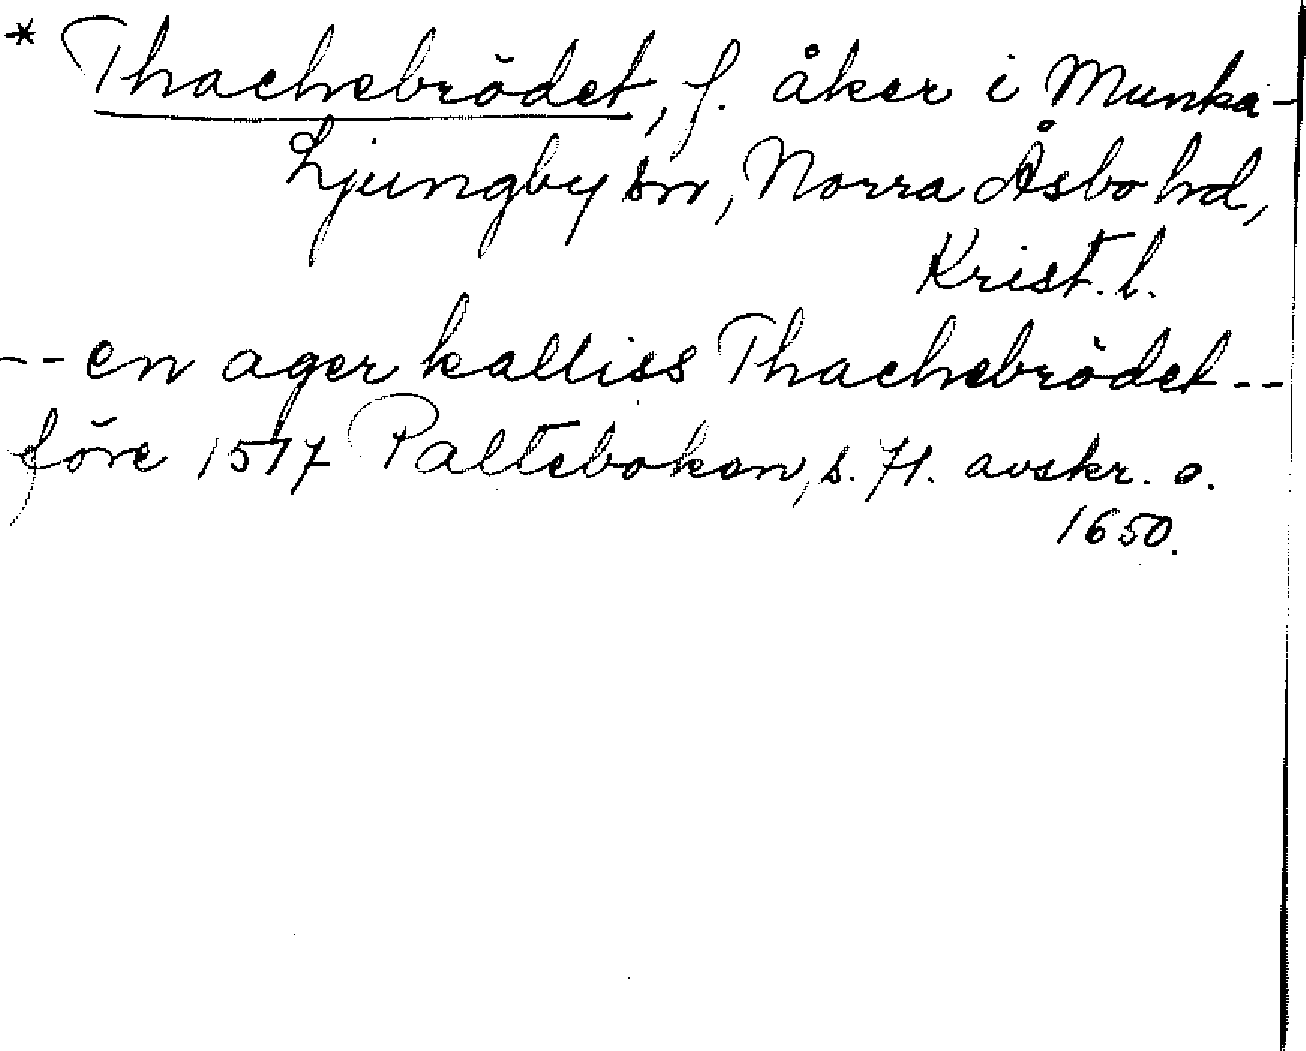 * Thachebrödet, f. åker i Munka-
Ljungby sn, Norra Åsbo hd,
Krist. l.
-- en ager kalliss Thachebrödet --
före 1517 Paltebokon, s. 71. avskr. o.
1650.